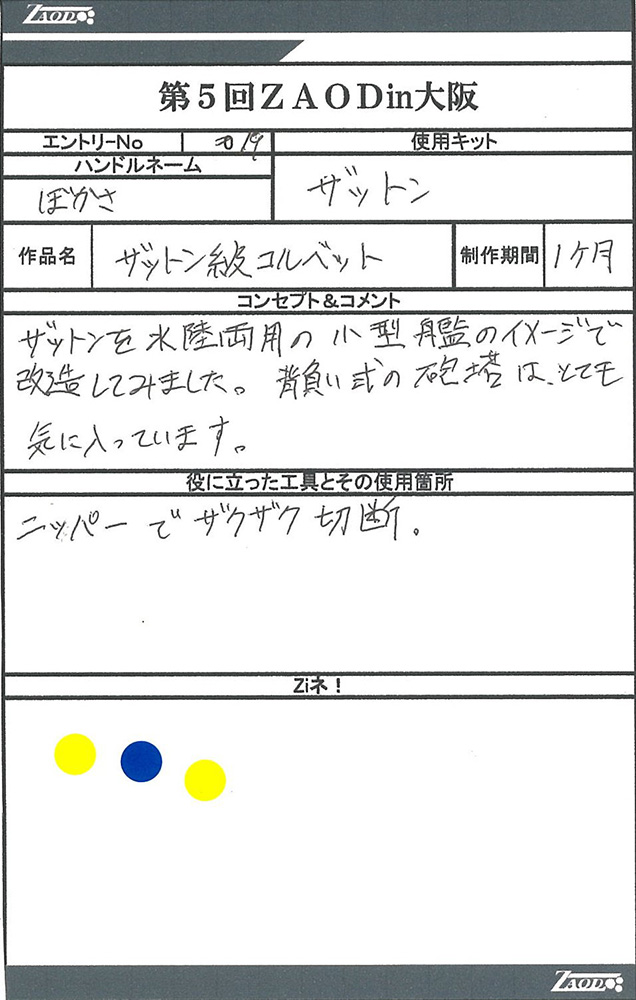 ZAOD
第5回ZAODin大阪
エントリーNo 019 使用キット
ハンドルネーム
ぼかさ
ザットン
作品名 ザットン級コルベット 制作期間 1ヶ月
コンセプト＆コメント
ザットンを水陸両用の小型艦のイメージで
改造してみました。背負い式の砲塔は、とても
気に入っています。
役に立った工具とその使用箇所
ニッパーでザクザク切断.
Ziネ！
ZAOD